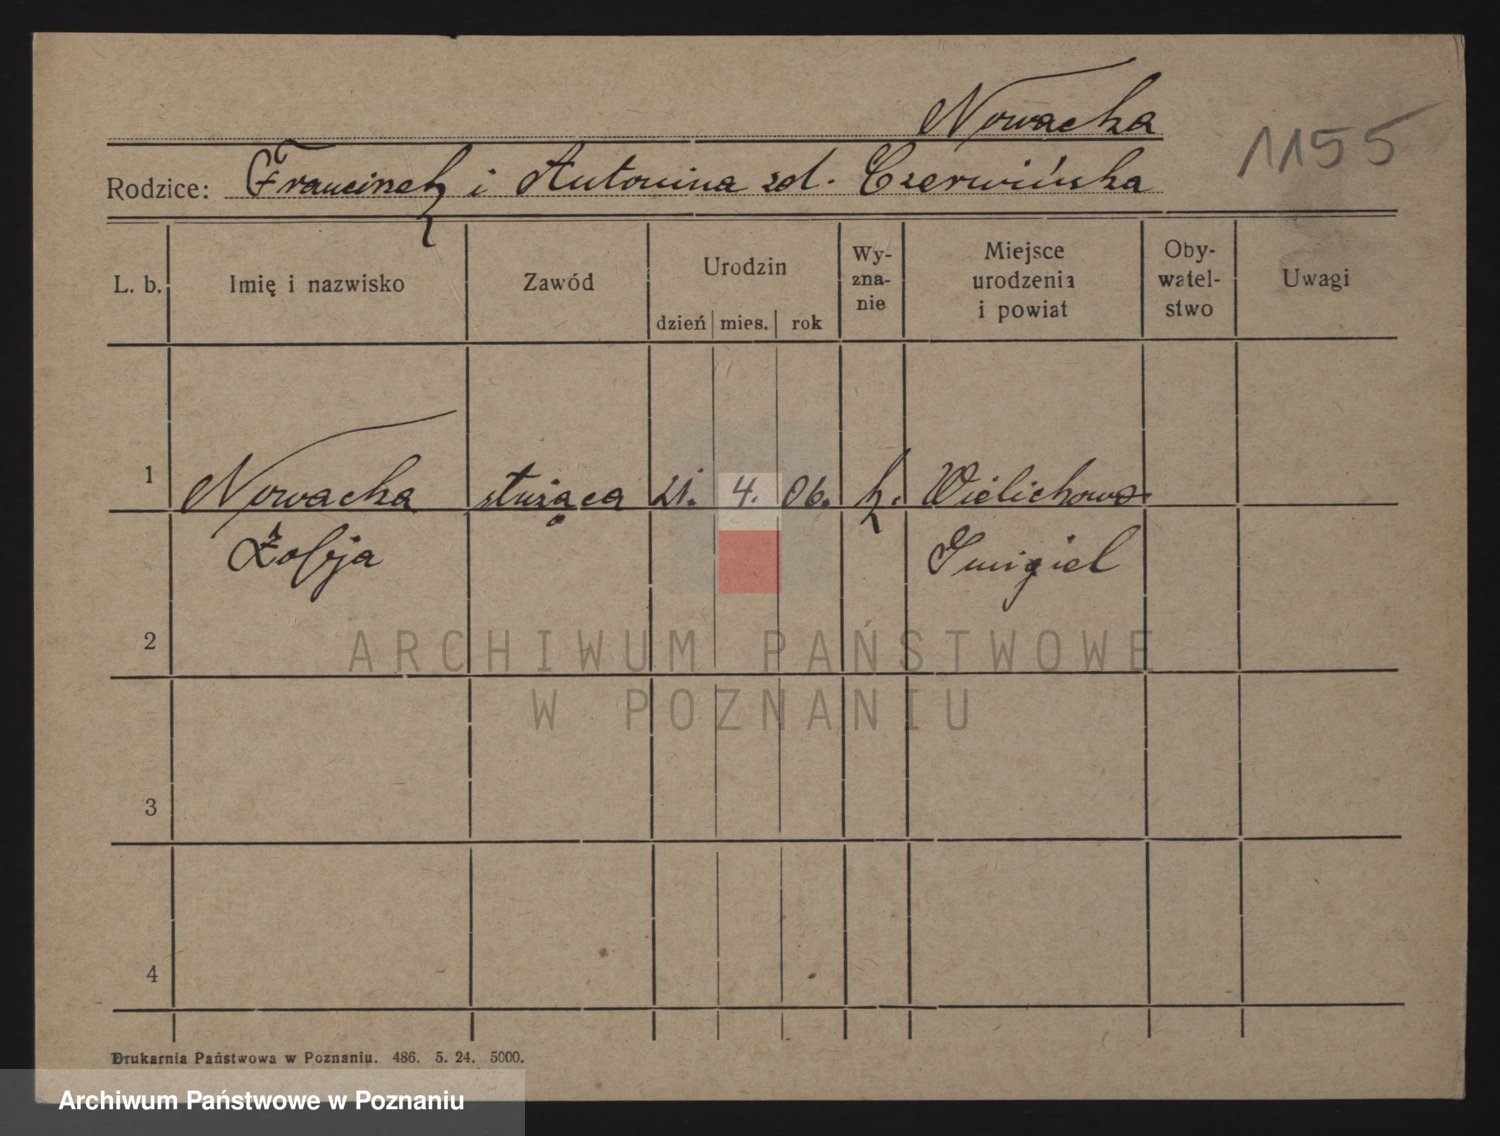 Nowacka
1155
Rodzice: Franciszek i Antonina zd. Czerwińska
L. b. Imię i nazwisko Zawód Urodzin dzień mies. rok Wy-zna-nie Miejsce urodzenia i powiat Oby-watel-stwo Uwagi
1 Nowacka służąca 21. 4. 06. k. Wielichowo
Zofja Śmigiel
2
ARCHIWUM PAŃSTWOWE
W POZNANIU
3
4
Drukarnia Państwowa w Poznaniu. 486. 5. 24. 5000.
Archiwum Państwowe w Poznaniu